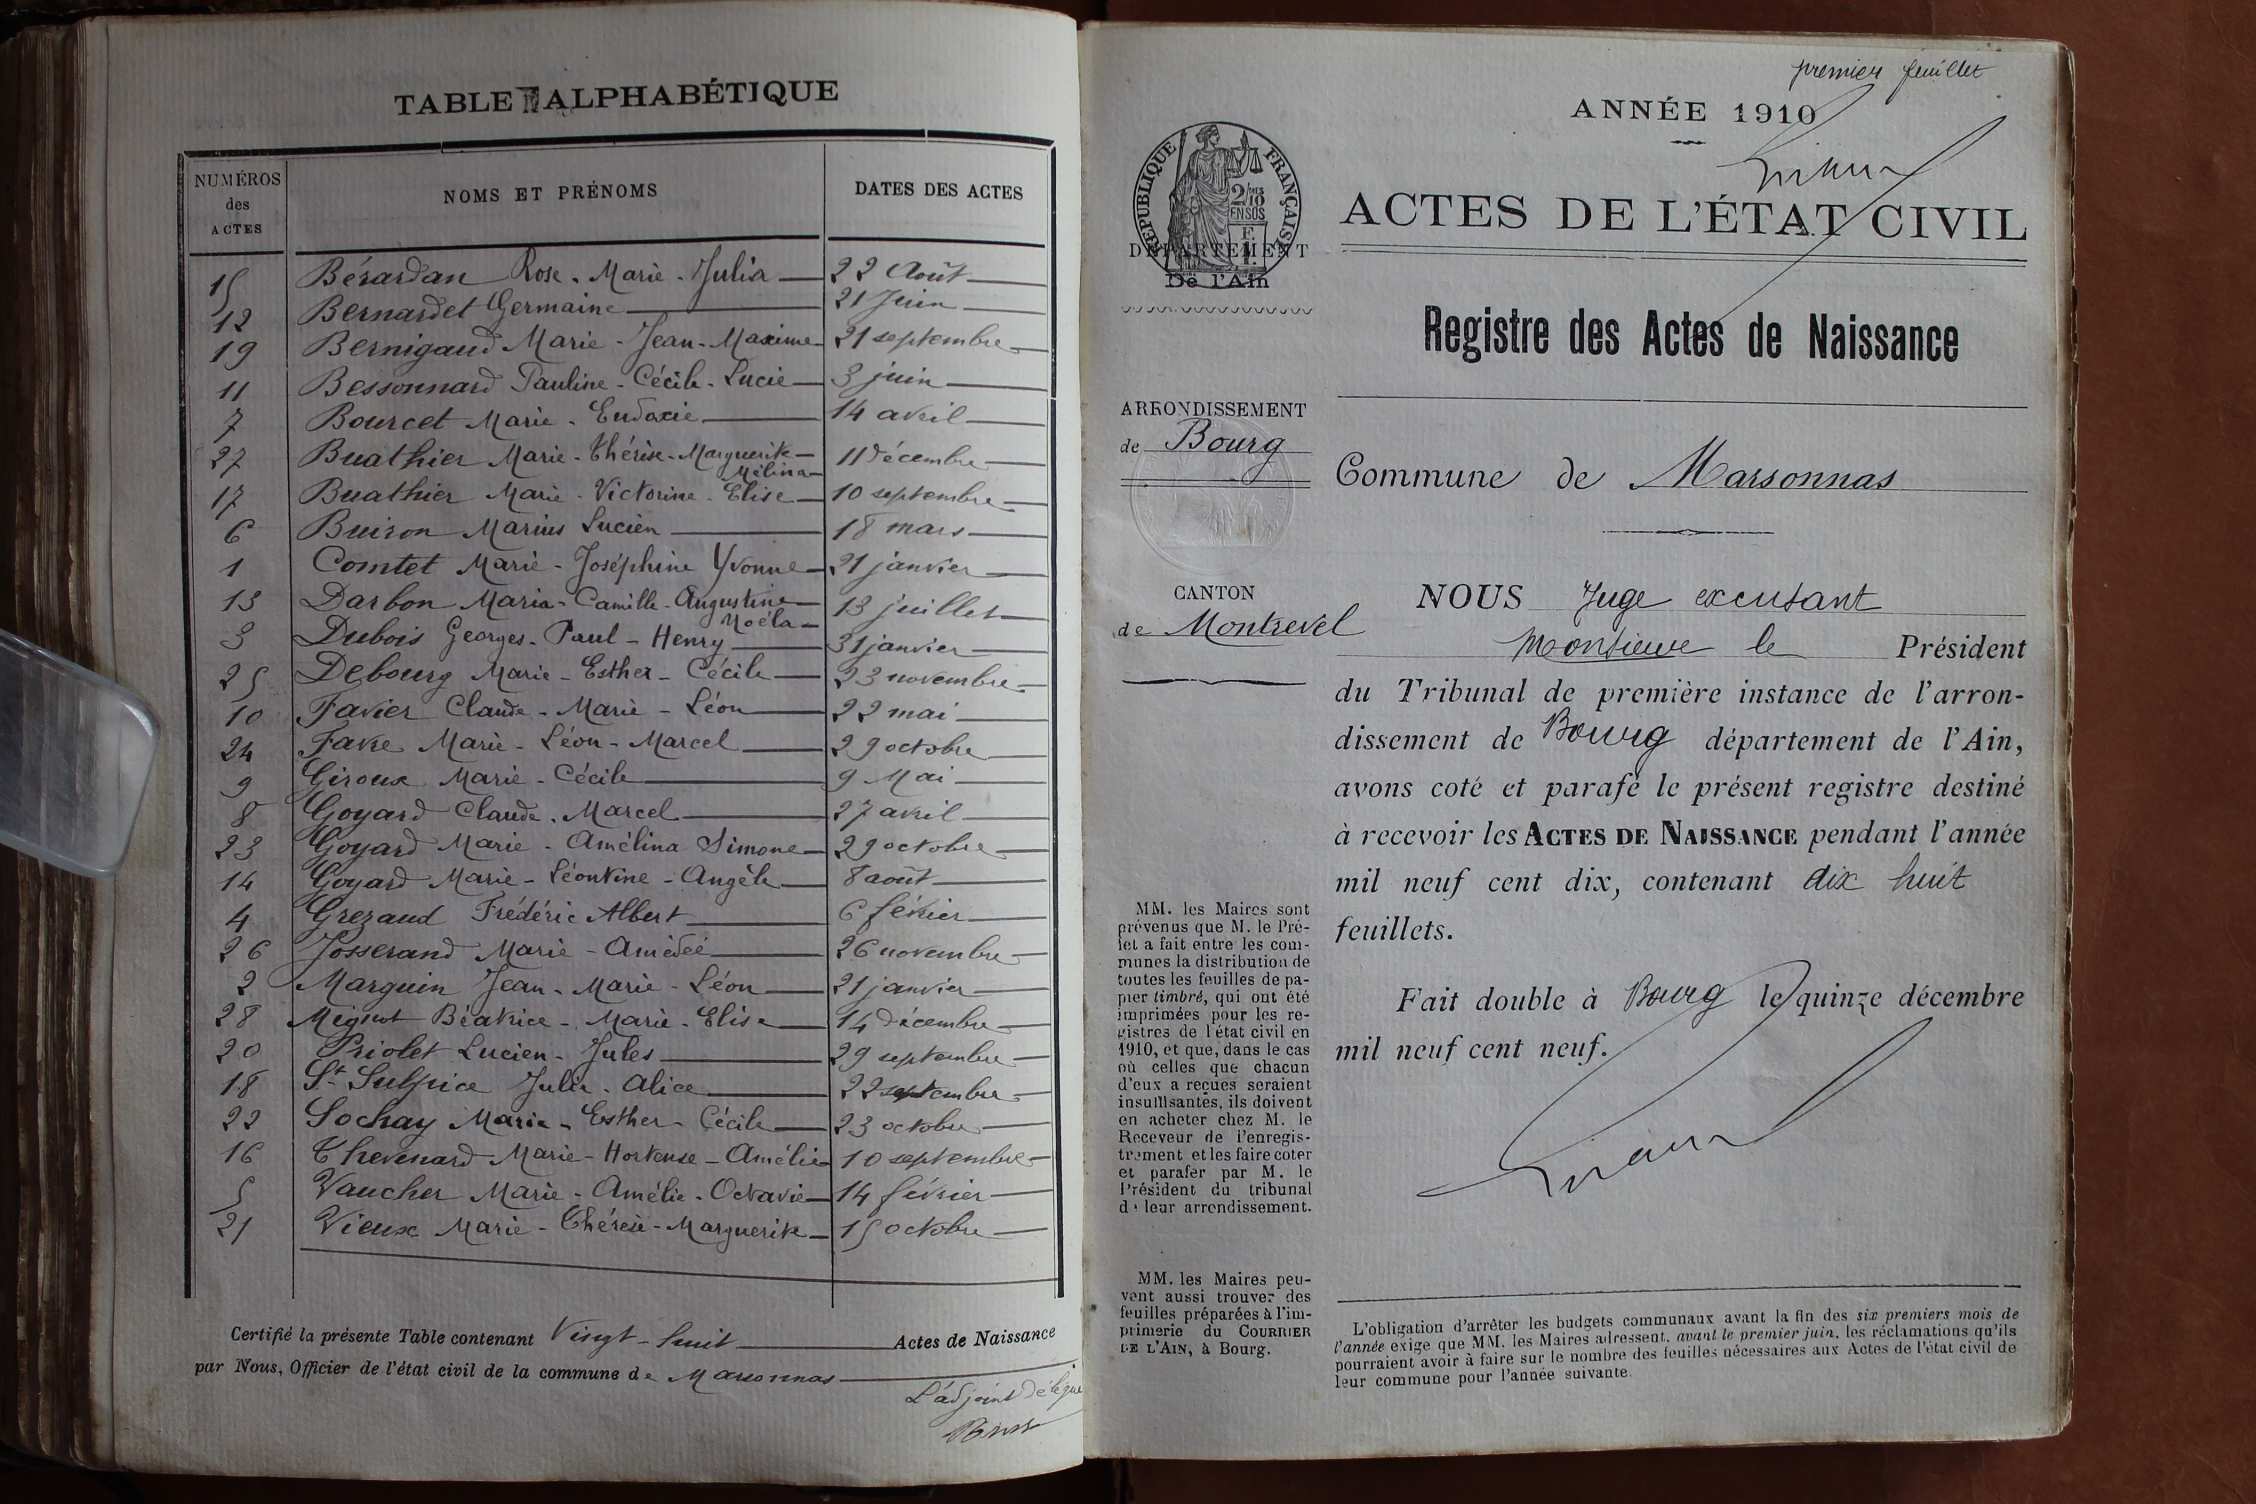 TABLE ALPHABÉTIQUE
NUMÉROS des ACTES
NOMS ET PRÉNOMS
DATES DES ACTES
15 Bérardan Rose - Marie - Julia 22 Août
12 Bernardet Germaine 21 Juin
19 Bernigaud Marie - Jean - Maxime 21 septembre
11 Bessonnard Pauline - Cécile - Lucie 3 juin
7 Bourcet Marie - Eudoxie 14 avril
27 Buathier Marie - Thérèse - Marguerite - Mélina 11 décembre
17 Buathier Marie - Victorine - Elise 10 septembre
6 Buiron Marius Lucien 18 mars
1 Comtet Marie - Joséphine Yvonne 21 janvier
13 Darbon Maria - Camille - Augustine Noéla 13 juillet
3 Dubois Georges - Paul - Henry 31 janvier
25 Debourg Marie - Esther - Cécile 23 novembre
10 Favier Claude - Marie - Léon 22 mai
24 Favre Marie - Léon - Marcel 29 octobre
9 Giroux Marie - Cécile 9 Mai
8 Goyard Claude - Marcel 27 avril
23 Goyard Marie - Amélina Simone 29 octobre
14 Goyard Marie - Léontine - Angèle 8 août
4 Grezaud Frédéric Albert 6 février
26 Josserand Marie - Amédée 26 novembre
2 Marguin Jean - Marie - Léon 21 janvier
28 Mignot Béatrice - Marie - Elise 14 décembre
20 Priolet Lucien - Jules 29 septembre
18 St Sulpice Julie - Alice 22 septembre
22 Sochay Marie - Esther - Cécile 23 octobre
16 Thevenard Marie - Hortense - Amélie 10 septembre
5 Vaucher Marie - Amélie - Octavie 14 février
21 Vieux Marie - Thérèse - Marguerite 15 octobre
Certifié la présente Table contenant Vingt - huit Actes de Naissance
par Nous, Officier de l'état civil de la commune de Marsonnas
L'adjoint délégué
premier feuillet
ANNÉE 1910
RÉPUBLIQUE FRANÇAISE
2/10 EN SUS
DÉPARTEMENT
De l'Ain
ACTES DE L'ÉTAT CIVIL
Registre des Actes de Naissance
ARRONDISSEMENT
de Bourg
Commune de Marsonnas
CANTON
de Montrevel
NOUS Juge excusant
Monsieur le Président
du Tribunal de première instance de l'arron-
dissement de Bourg département de l'Ain,
avons coté et parafé le présent registre destiné
à recevoir les ACTES DE NAISSANCE pendant l'année
mil neuf cent dix, contenant dix huit
feuillets.
Fait double à Bourg le quinze décembre
mil neuf cent neuf.
MM. les Maires sont
prévenus que M. le Pré-
fet a fait entre les com-
munes la distribution de
toutes les feuilles de pa-
pier timbré, qui ont été
imprimées pour les re-
gistres de l'état civil en
1910, et que, dans le cas
où celles que chacun
d'eux a reçues seraient
insuffisantes, ils doivent
en acheter chez M. le
Receveur de l'enregis-
trement et les faire coter
et parafer par M. le
Président du tribunal
de leur arrondissement.
MM. les Maires peu-
vent aussi trouver des
feuilles préparées à l'im-
primerie du COURRIER
DE L'AIN, à Bourg.
L'obligation d'arrêter les budgets communaux avant la fin des six premiers mois de
l'année exige que MM. les Maires adressent, avant le premier juin, les réclamations qu'ils
pourraient avoir à faire sur le nombre des feuilles nécessaires aux Actes de l'état civil de
leur commune pour l'année suivante.